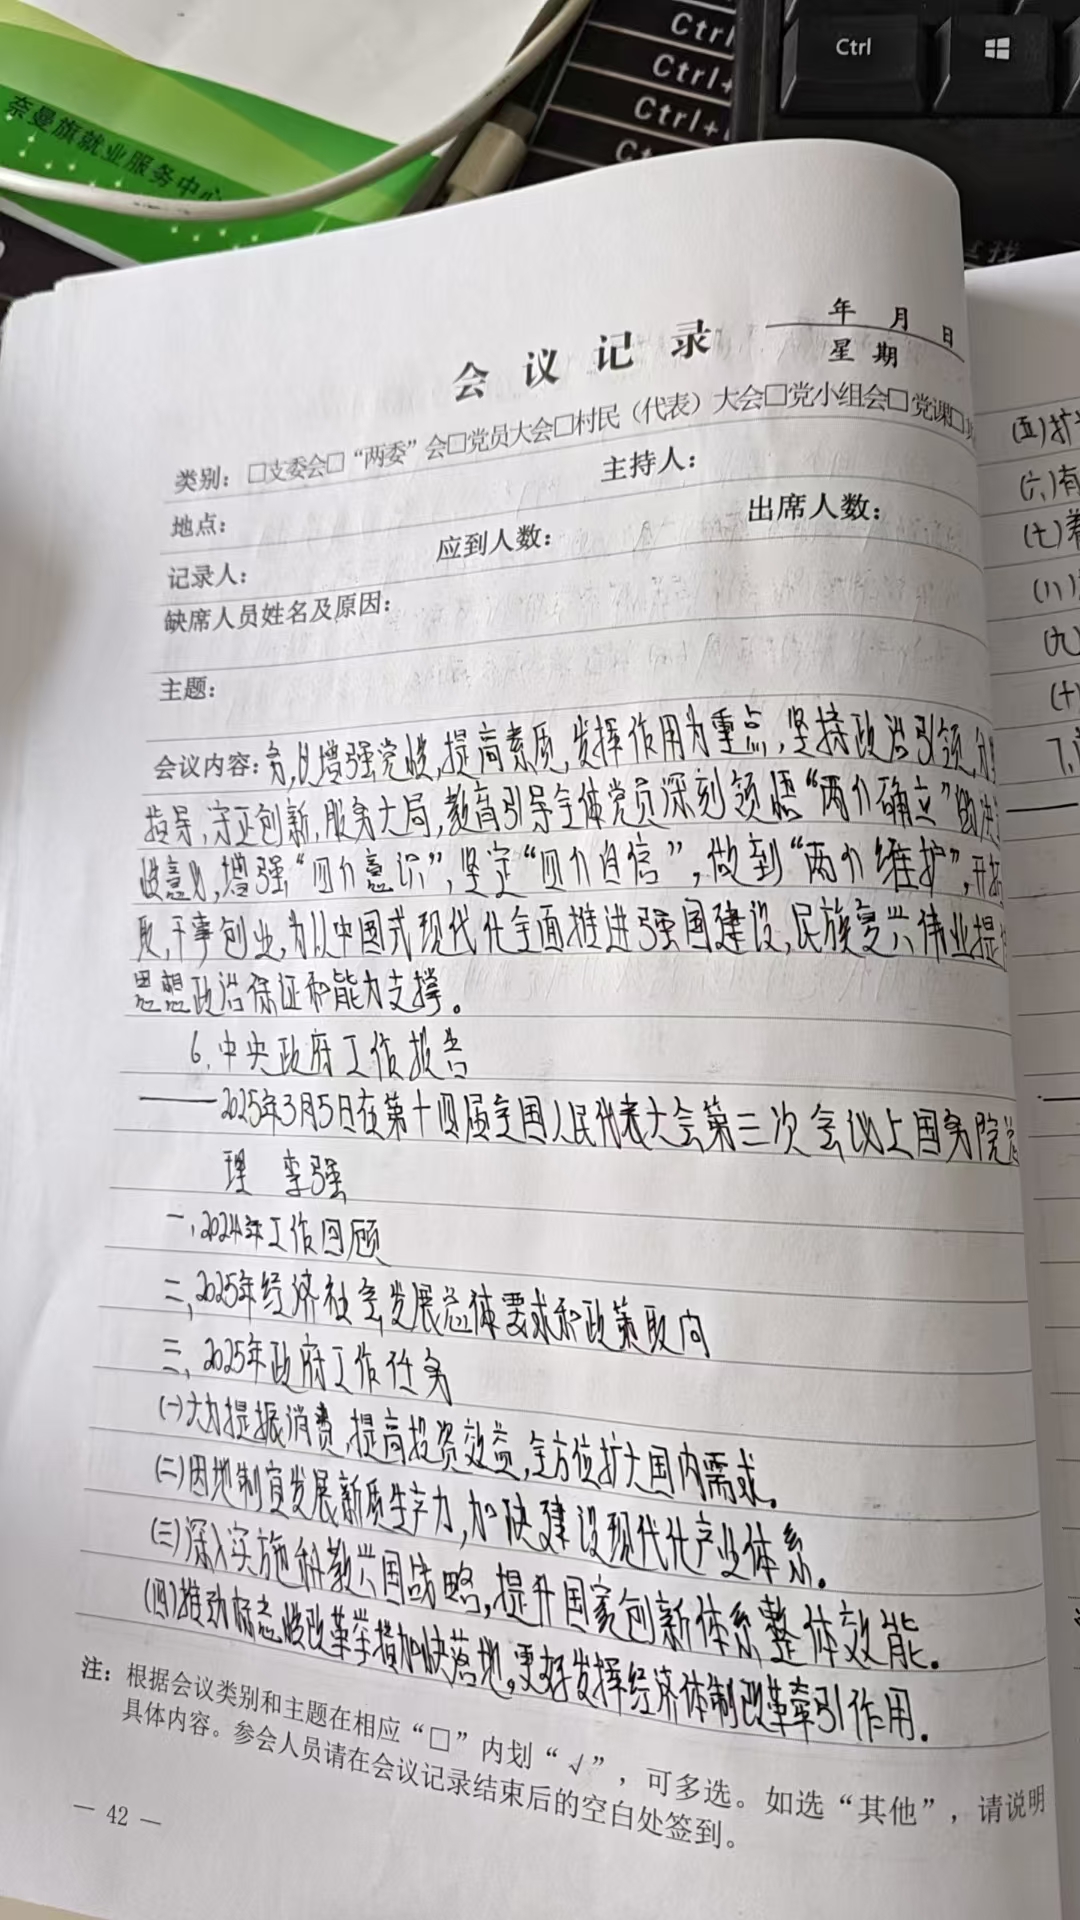 Ctrl
Ctrl
Ctrl+
Ctrl+
奈曼旗就业服务中心
会议记录
年 月 日
星期
类别：□支委会□“两委”会□党员大会□村民（代表）大会□党小组会□党课□
地点： 主持人：
记录人： 应到人数： 出席人数：
缺席人员姓名及原因：
主题：
会议内容：务，以增强党性，提高素质，发挥作用为重点，坚持政治引领，分
指导，守正创新，服务大局，教育引导全体党员深刻领悟“两个确立”的决
性意义，增强“四个意识”，坚定“四个自信”，做到“两个维护”，开拓
取，干事创业，为以中国式现代化全面推进强国建设，民族复兴伟业提
思想政治保证和能力支撑。
6.中央政府工作报告
——2025年3月5日在第十四届全国人民代表大会第三次会议上国务院总
理 李强
一，2024年工作回顾
二，2025年经济社会发展总体要求和政策取向
三，2025年政府工作任务
(一)大力提振消费，提高投资效益，全方位扩大国内需求。
(二)因地制宜发展新质生产力，加快建设现代化产业体系。
(三)深入实施科教兴国战略，提升国家创新体系整体效能。
(四)推动标志性改革举措加快落地。更好发挥经济体制改革牵引作用。
注：根据会议类别和主题在相应“□”内划“√”，可多选。如选“其他”，请说明
具体内容。参会人员请在会议记录结束后的空白处签到。
— 42 —
(五)扩
(六)有
(七)着
(八)
(九)
(十)
7.